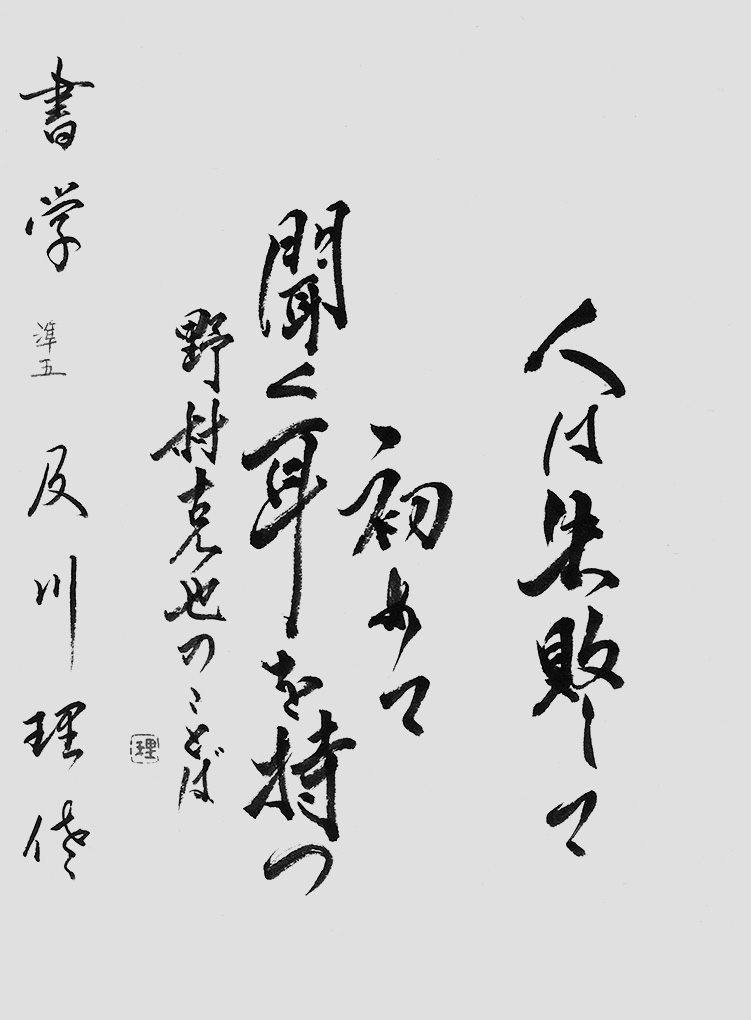 人は失敗して
初めて
聞く耳を持つ
野村克也のことば
理
書学 準五 及川理